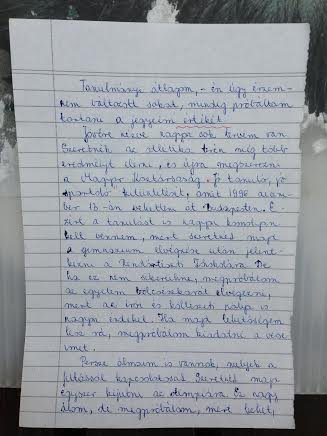 Tanulmányi átlagom, - én úgy érzem -
nem változott sokat, mindig próbáltam
tartani a jegyeim értékét.
Jövőre nézve nagyon sok tervem van.
Szeretnék az atlétika terén még több
eredményt elérni, és újra megszerezni
a Magyar Köztársaság Jó tanuló, jó
sportoló kitüntetését, amit 1996
13-án vehettem át Budapesten. E-
zért a tanulást is nagyon komolyan
kell vennem, mert szeretnék majd
a gimnázium elvégzése után jelent-
kezni a Rendőrtiszti Főiskolára. De
ha ez nem sikerülne, megpróbálom
az egyetem bölcsészkarát elvégezni,
mert az írói és költészeti pálya is
nagyon érdekel. Ha majd lehetőségem
lesz rá, megpróbálom kiadatni a
imet.
Persze álmaim is vannak, melyek a
futással kapcsolatosak. Szeretnék majd
egyszer kijutni az olimpiára. Ez nagy
álom, de megpróbálom, mert lehet,